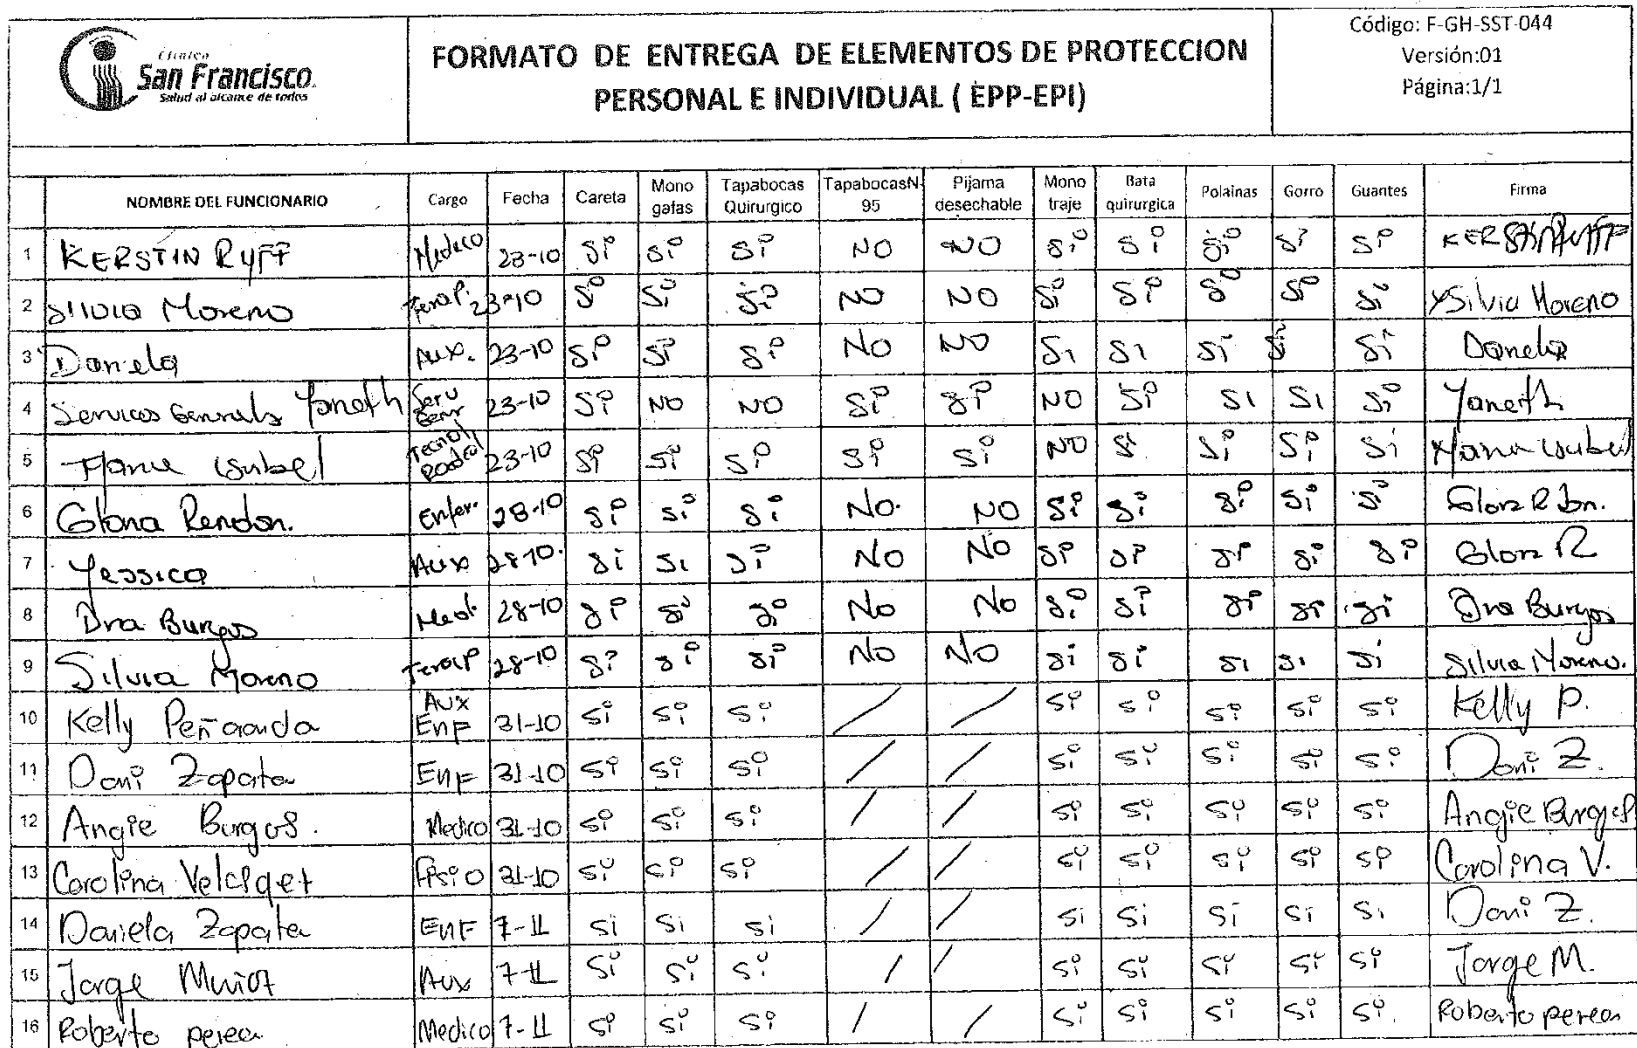 Clínica
San Francisco.
Salud al alcance de todos
FORMATO DE ENTREGA DE ELEMENTOS DE PROTECCION
PERSONAL E INDIVIDUAL ( EPP-EPI)
Código: F-GH-SST-044
Versión:01
Página:1/1
NOMBRE DEL FUNCIONARIO Cargo Fecha Careta Mono gafas Tapabocas Quirurgico TapabocasN-95 Pijama desechable Mono traje Bata quirurgica Polainas Gorro Guantes Firma
1 KERSTIN RYFF Medico 23-10 Si Si Si NO NO Si Si Si Si Si KERSTIN RYFF
2 Silvia Moreno Terap. 23-10 Si Si Si NO NO Si Si Si Si Si Silvia Moreno
3 Daniela Aux. 23-10 Si Si Si No NO Si Si Si Si Si Daniela
4 Servicios Generals Yaneth Serv Genr 23-10 Si NO NO Si Si NO Si Si Si Si Yaneth
5 Tecnol 23-10 Si Si Si Si Si NO Si Si Si Si
6 Gloria Rendon. Enfer. 28-10 Si Si Si No. NO Si Si Si Si Si
7 Yessica Aux 28-10. Si Si Si No No Si Si Si Si Si Glora R
8 Dra Burgos Med. 28-10 Si Si Si No No Si Si Si Si Si Dra Burgos
9 Silvia Moreno Terap 28-10 Si Si Si No No Si Si Si Si Si Silvia Moreno.
10 Kelly Peñaranda AUX ENF 31-10 Si Si Si / / Si Si Si Si Si Kelly P.
11 Dani Zapata ENF 31-10 Si Si Si / / Si Si Si Si Si Dani Z.
12 Angie Burgos. Medico 31-10 Si Si Si / / Si Si Si Si Si Angie Burgos
13 Carolina Fisio 31-10 Si Si Si / / Si Si Si Si Si Carolina V.
14 Daniela Zapata ENF 7-11 Si Si Si / / Si Si Si Si Si Dani Z.
15 Jorge Muñoz Aux 7-11 Si Si Si / / Si Si Si Si Si Jorge M.
16 Roberto perea Medico 7-11 Si Si Si / / Si Si Si Si Si. Roberto perea